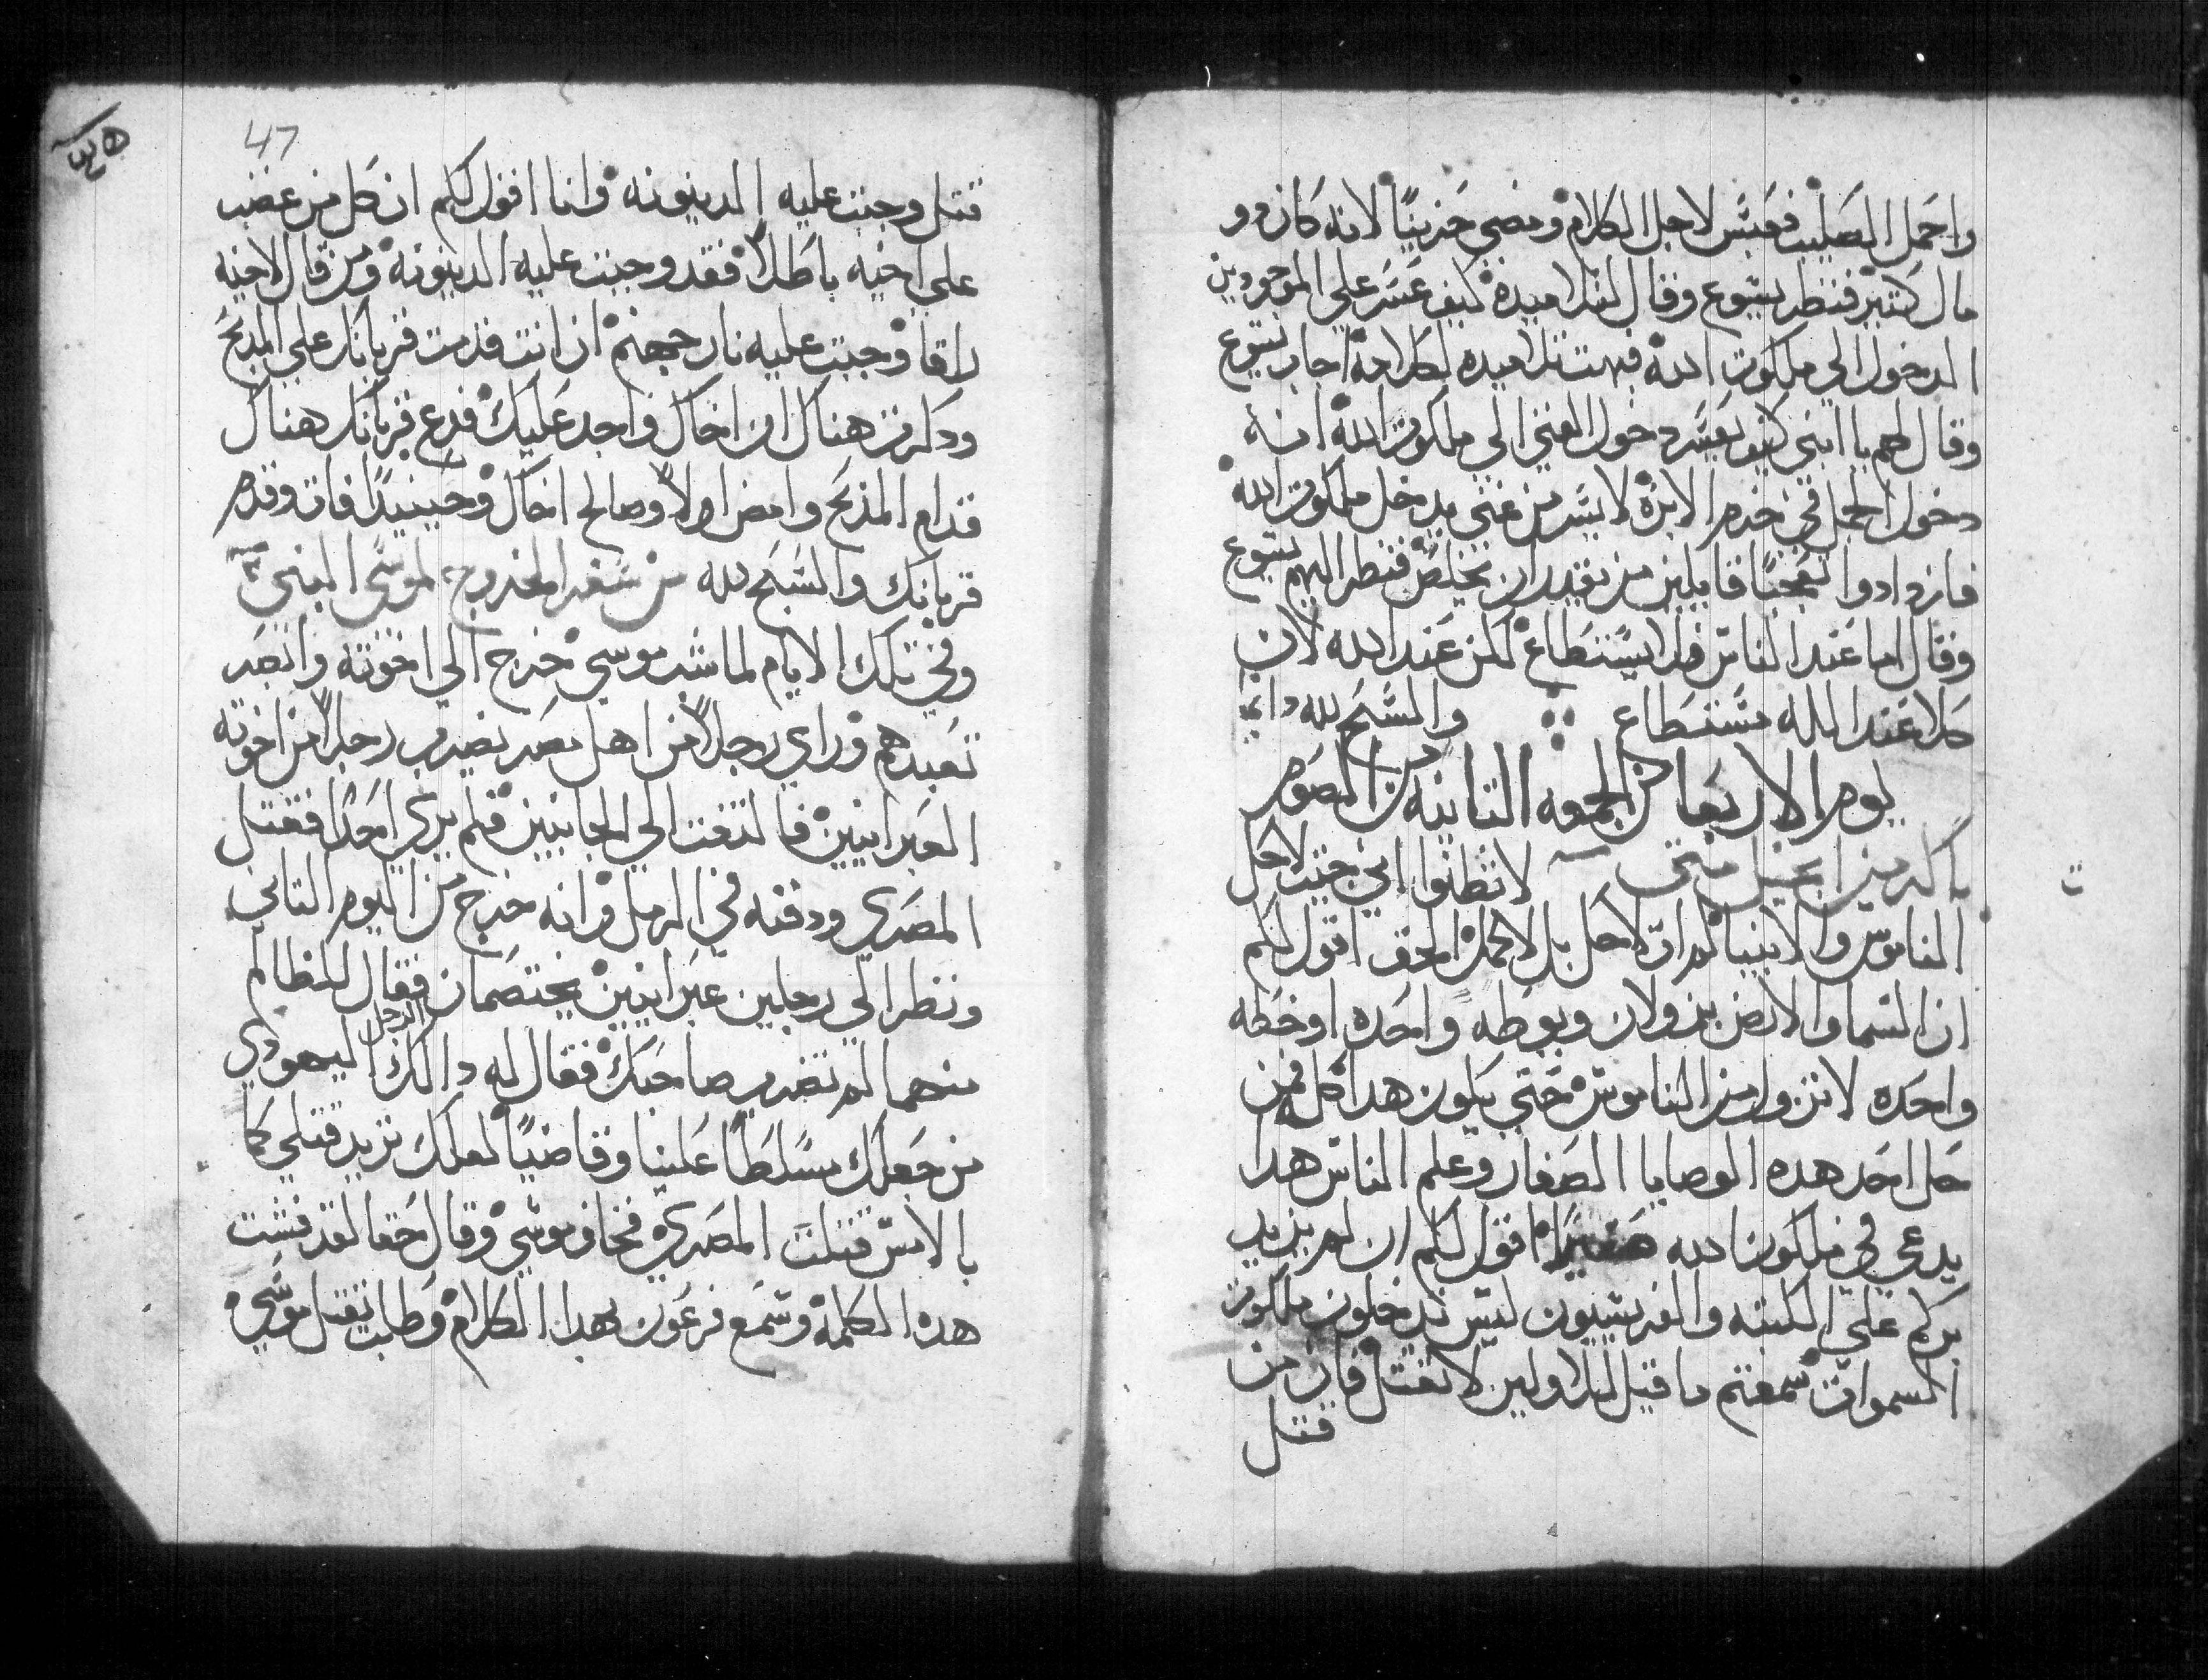 واحمل الصليب فعبس لاجل الكلام ومضي حزيناً لانه كان دو
مال كتير فنظر يسوع وقال لتلاميده كيف عسر علي الموجودين
الدخول الي ملكوت الله فبهت تلاميده لكلامه اجاب يسوع
وقال لهم يا ابني كيف يعسر دخول الغني الي ملكوت الله انه
دخول الجمل في خرم الابره لايسر من غني يدخل ملكوت الله
فازدادوا تعجباً قايلين من يقدر ان يخلص فنظر اليهم يسوع
وقال اما عند الناس فلا يستطاع لكن عند الله لان
كلا عند الله مستطاع والسبح لله دايما
يوم الاربعا من الجمعه التانيه من الصوم
باكر من انجيل متي لا تظنوا اني جيت لاحل
الناموس والانبيا لم ات لاحل بل لاكمل الحق اقول لكم
ان السما والارض يزولان ويوطه واحده او خطه
واحده لا تزول من الناموس حتي يكون هدا كله فمن
حل احد هده الوصايا الصغار وعلم الناس هدا
يدعي في ملكوت الله صغيرا اقول لكم ان لم يزيد
بركم علي الكتبه والفريسيون ليس تدخلون ملكوت
السموات سمعتم ما قيل للاولين لا تقتل فان من
قتل
47
قتل وجبت عليه الدينونه وانا اقول لكم ان كل من غضب
علي اخيه باطلاً فقد وجبت عليه الدينونه ومن قال لاخيه
راقا وجبت عليه نار جهنم ان انت قدمت قربانك علي المدبح
ودكرت هناك ان اخاك واجد عليك فدع قربانك هناك
قدام المدبح وامض اولاً وصالح اخاك وحينيداً فات وقدم
قربانك والسبح لله من سفر الخروج لموسي النبي
وفي تلك الايام لما شب موسي خرج الي اخوته وابصر
تعبدهم وراي رجلاً من اهل مصر يضرب رجلاً من اخوته
العبرانيين فالتفت الي الجانبين فلم يري احداً فقتل
المصري ودفنه في الرمل وانه خرج من اليوم التاني
ونظر الي رجلين عبرانيين يختصمان فقال للظالم
منهما لم تضرب صاحبك فقال له دالك الرجل اليهودي
من جعلك مسلطاً علينا وقاضياً لعلك تريد قتلي كما
بالامس قتلت المصري فخاف موسي وقال حقا لقد فشت
هده الكلمه وسمع فرعون بهدا الكلام وطلب يقتل موسي